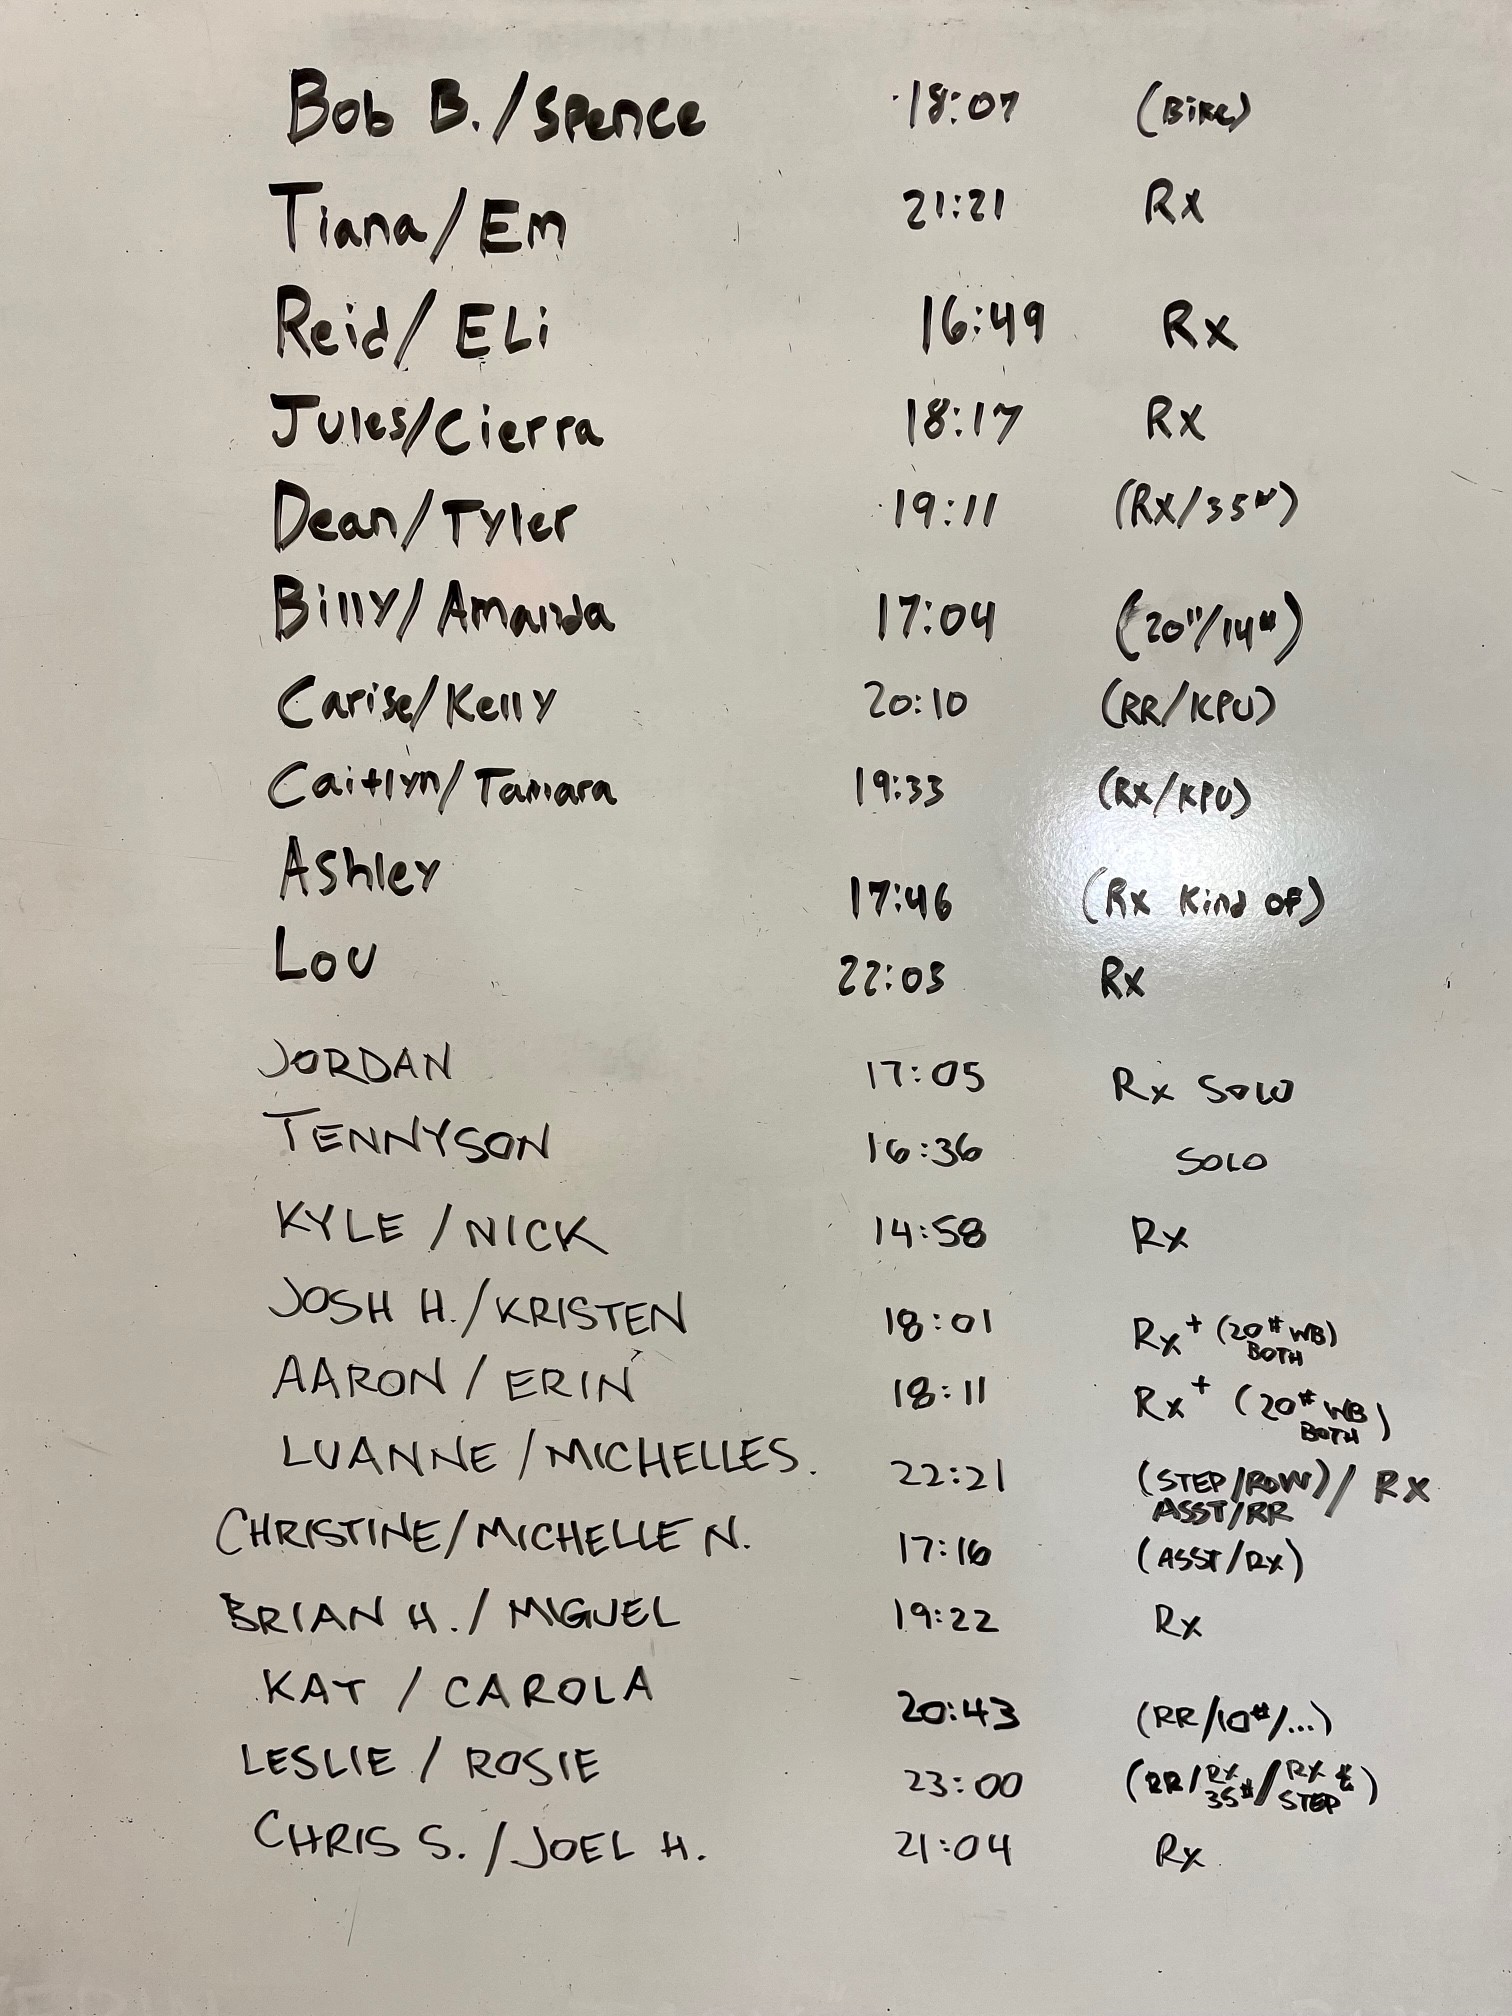 Bob B./Spence 18:07 (Bike)
Tiana/Em 21:21 Rx
Reid/ELi 16:49 Rx
Jules/Cierra 18:17 Rx
Dean/Tyler 19:11 (Rx/35#)
Billy/Amanda 17:04 (20"/14#)
Carise/Kelly 20:10 (RR/KPU)
Caitlyn/Tamara 19:33 (Rx/KPU)
Ashley 17:46 (Rx Kind of)
Lou 22:03 Rx
JORDAN 17:05 Rx SOLO
TENNYSON 16:36 SOLO
KYLE / NICK 14:58 Rx
JOSH H./KRISTEN 18:01 Rx+ (20# WB) BOTH
AARON / ERIN 18:11 Rx+ (20# WB BOTH)
LUANNE / MICHELLE S. 22:21 (STEP/ROW)/ RX ASST/RR
CHRISTINE/MICHELLE N. 17:16 (ASST/RX)
BRIAN H. / MIGUEL 19:22 Rx
KAT / CAROLA 20:43 (RR/10#/...)
LESLIE / ROSIE 23:00 (RR/RX 35#/RX & STEP)
CHRIS S. / JOEL H. 21:04 Rx